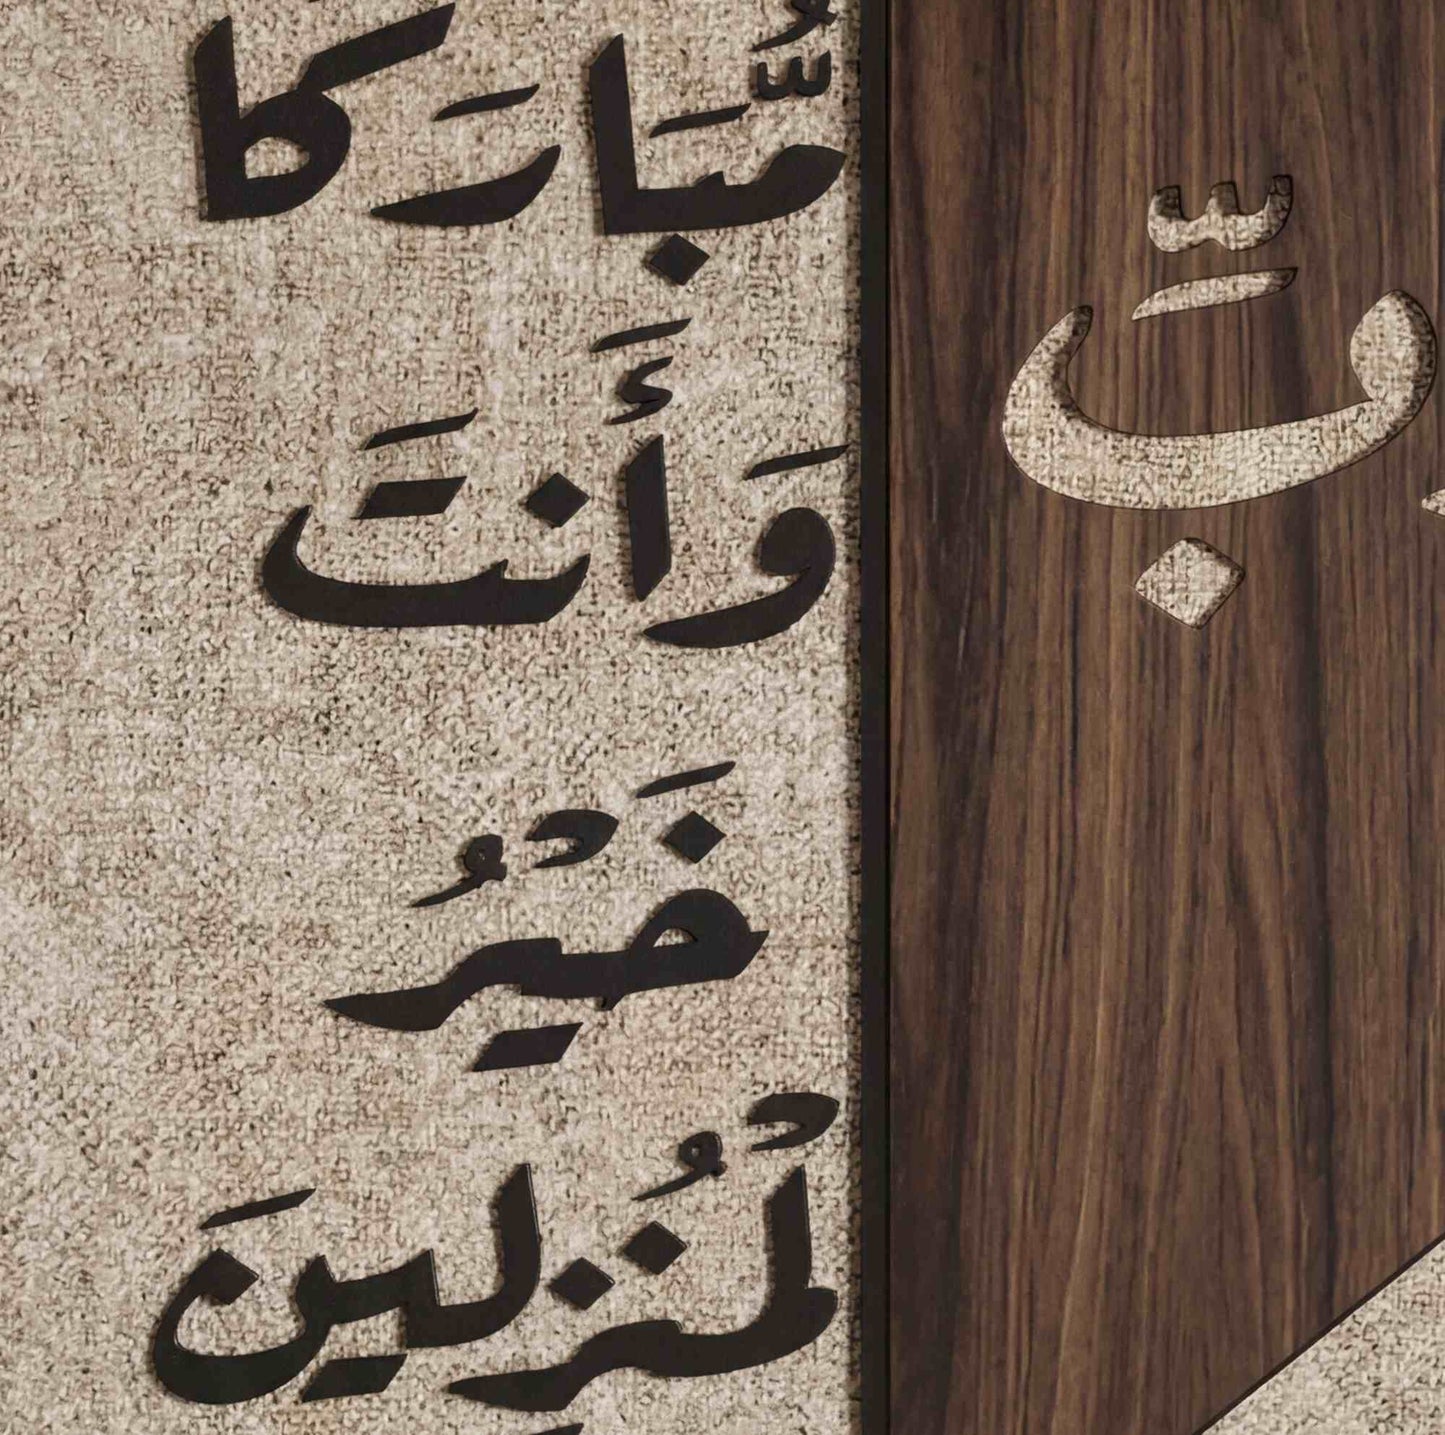 بِّ
مُّبَارَكًا
وَأَنتَ
خَيْرُ
لْمُنزِلِينَ